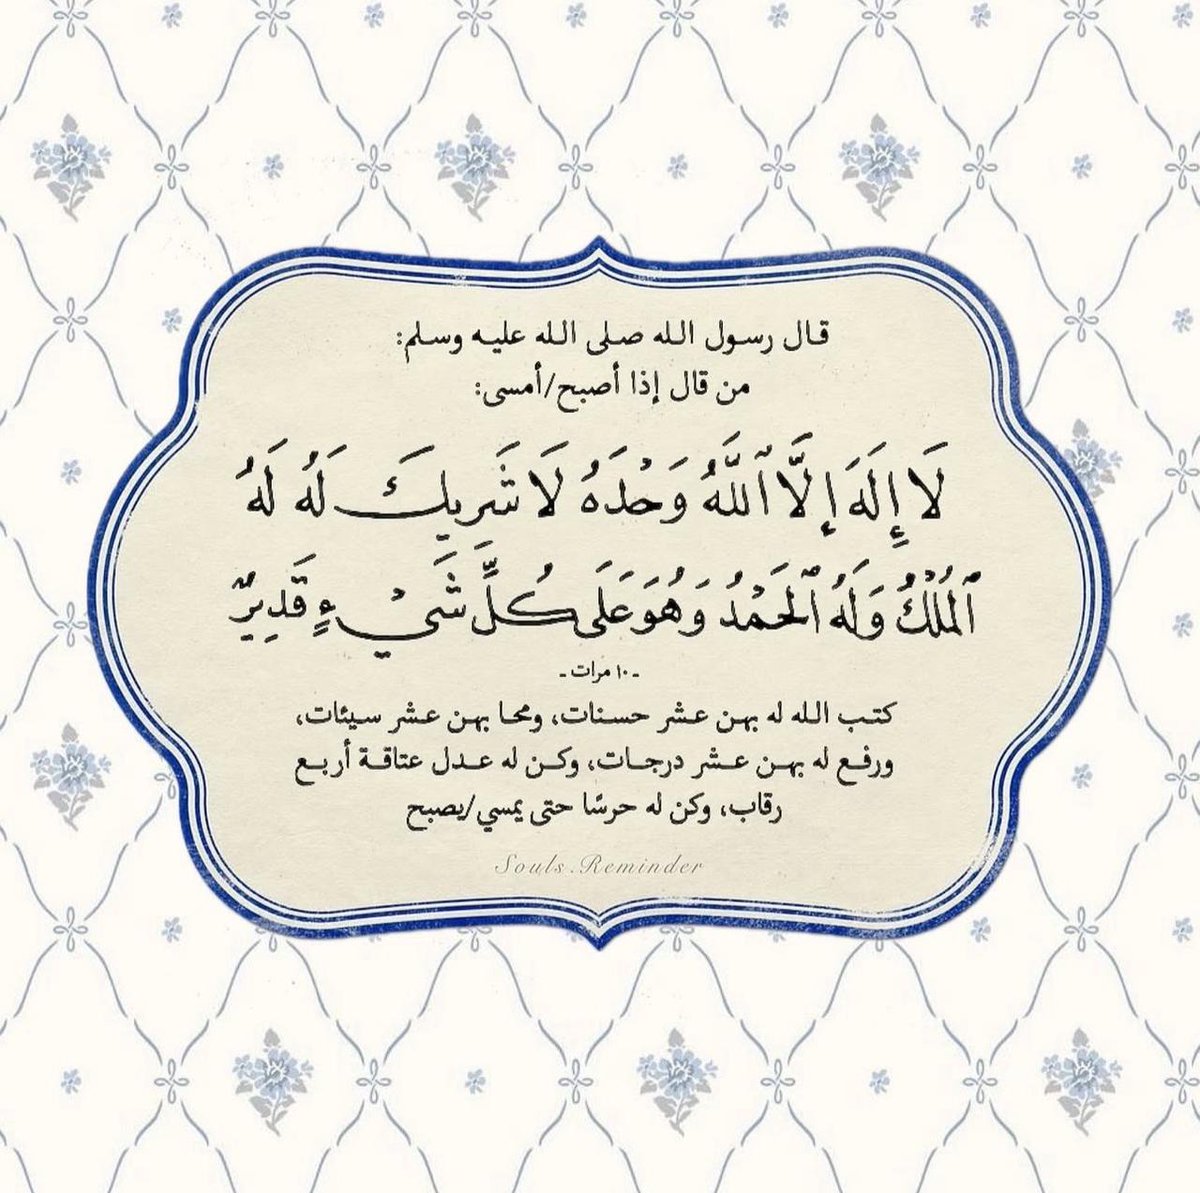 قال رسول الله صلى الله عليه وسلم:
من قال إذا أصبح/أمسى:
لَا إِلَهَ إِلَّا ٱللَّهُ وَحْدَهُ لَا شَرِيكَ لَهُ لَهُ
ٱلْمُلْكُ وَلَهُ ٱلْحَمْدُ وَهُوَ عَلَى كُلِّ شَيْءٍ قَدِيرٌ
- ١٠ مرات -
كتب الله له بهن عشر حسنات، ومحا بهن عشر سيئات،
ورفع له بهن عشر درجات، وكن له عدل عتاقة أربع
رقاب، وكن له حرسًا حتى يمسي/يصبح
Souls.Reminder